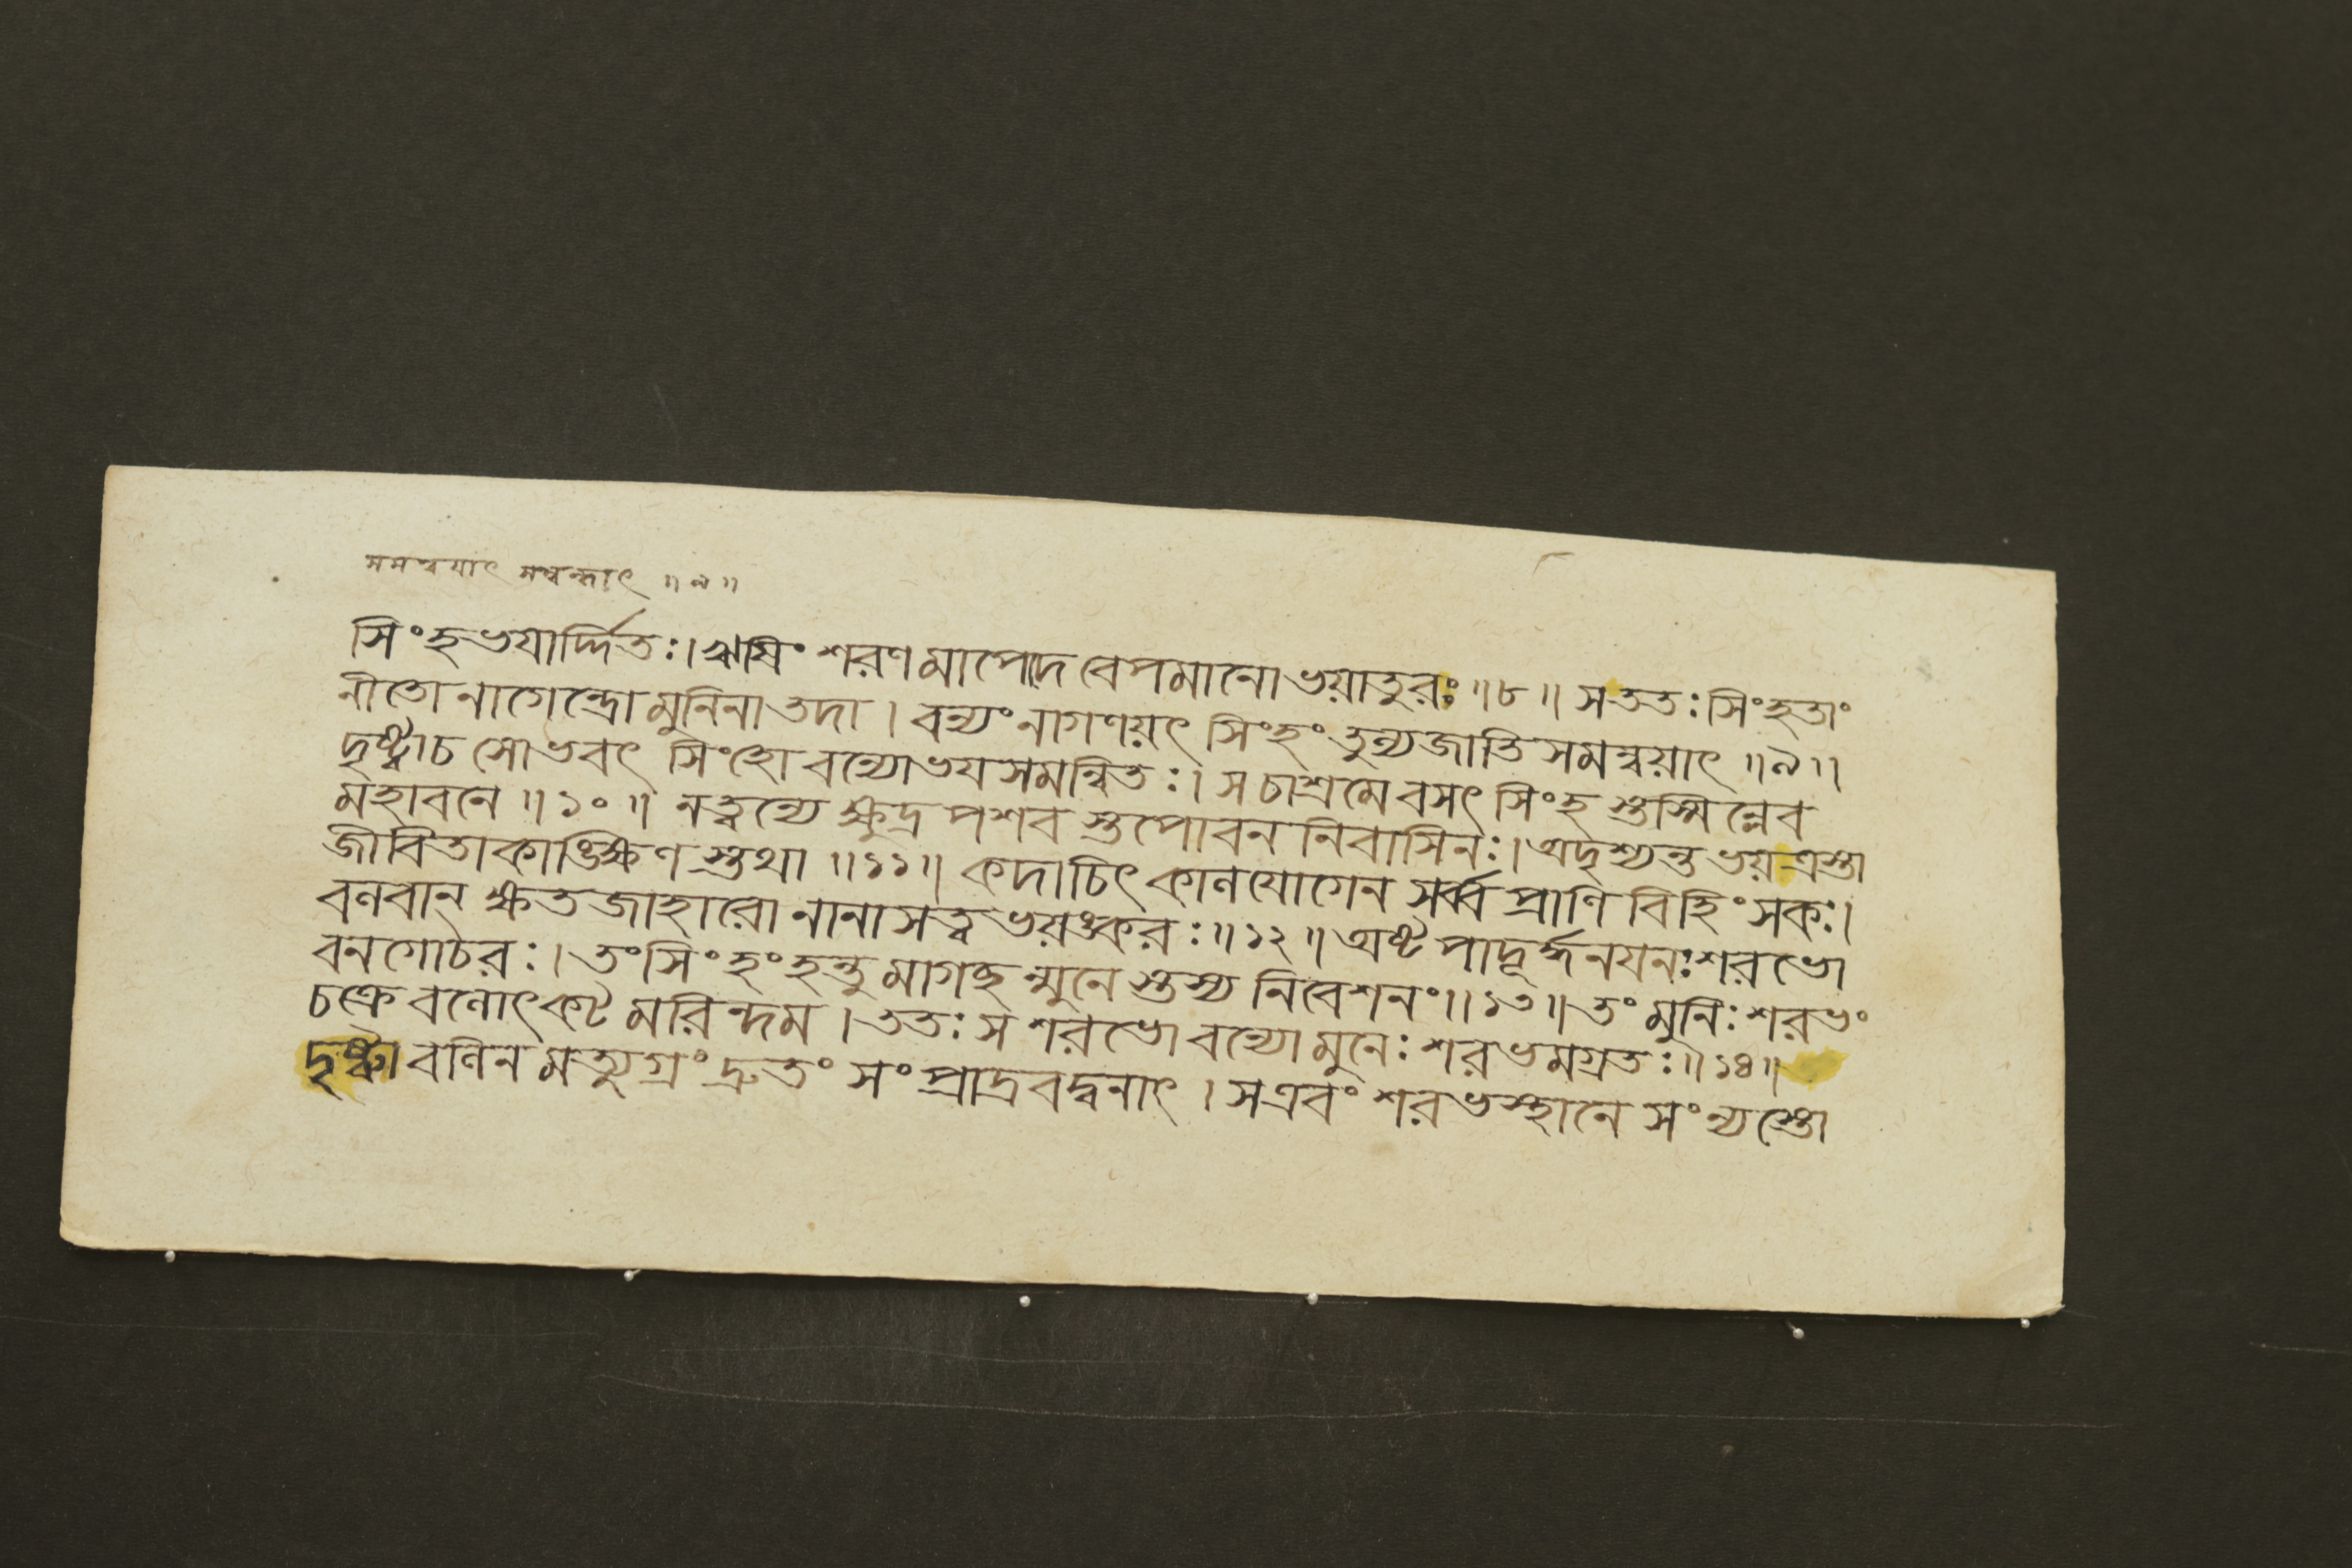 সমন্বয়াৎ সম্বন্ধাৎ ॥৯॥
সিংহভযার্দ্দিতঃ। ঋষিং শরণমাপেদে বেপমানো ভয়াতুরঃ ॥৮॥ স ততঃ সিংহতাং
নীতো নাগেন্দ্রো মুনিনা তদা । বন্যং নাগণয়ৎ সিংহং তুল্যজাতি সমন্বয়াৎ ॥৯॥
দৃষ্ট্বা চ সোভবৎ সিংহো বন্যো ভযসমন্বিতঃ। স চাশ্রমে বসৎ সিংহ স্তস্মিন্নেব
মহাবনে ॥১০॥ নত্বন্যে ক্ষুদ্র পশব স্তপোবন নিবাসিনঃ। অদৃশ্যন্ত ভয়ত্রস্তা
জীবিতাকাঙ্ক্ষিণ স্তথা ॥১১॥ কদাচিৎ কালযোগেন সর্ব্ব প্রাণি বিহিংসকঃ।
বলবান্ ক্ষতজাহারো নানা সত্ব ভয়ঙ্করঃ ॥১২॥ অষ্টপাদূর্দ্ধনযনঃ শরভো
বনগোচরঃ। তং সিংহং হন্তুমাগচ্ছন্মুনেস্তস্য নিবেশনং ॥১৩॥ তং মুনিঃ শরভং
চক্রে বলোৎকটমরিন্দম । ততঃ স শরভো বন্যো মুনেঃ শরভমগ্রতঃ ॥১৪॥
দৃষ্ট্বা বলিনমত্যুগ্রং দ্রুতং সংপ্রাদ্রবদ্বনাৎ । স এবং শরভস্থানে সংন্যস্তো